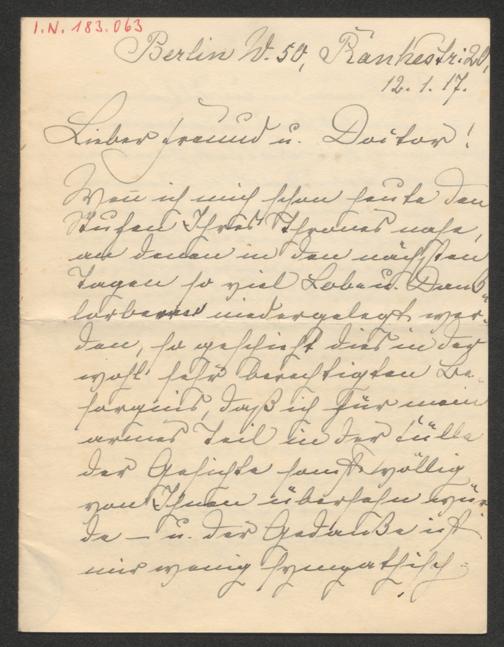 I.N. 183.063
Berlin W. 50, Rankestr. 20,
12. 1. 17.
Lieber Freund u. Doctor!
Wen̄ ich mich schon heute den
Stufen Ihres Thrones nahe,
an denen in den nächsten
Tagen so viel Lob u. Dank
lorbeeren niedergelegt wer-
den, so geschieht dies in der
wohl sehr berechtigten Be-
sorgnis, daß ich für mein
armes Teil in der Fülle
der Gesichte sonst völlig
von Ihnen übersehn wür
de – u. der Gedanke ist
mir wenig sympathisch.